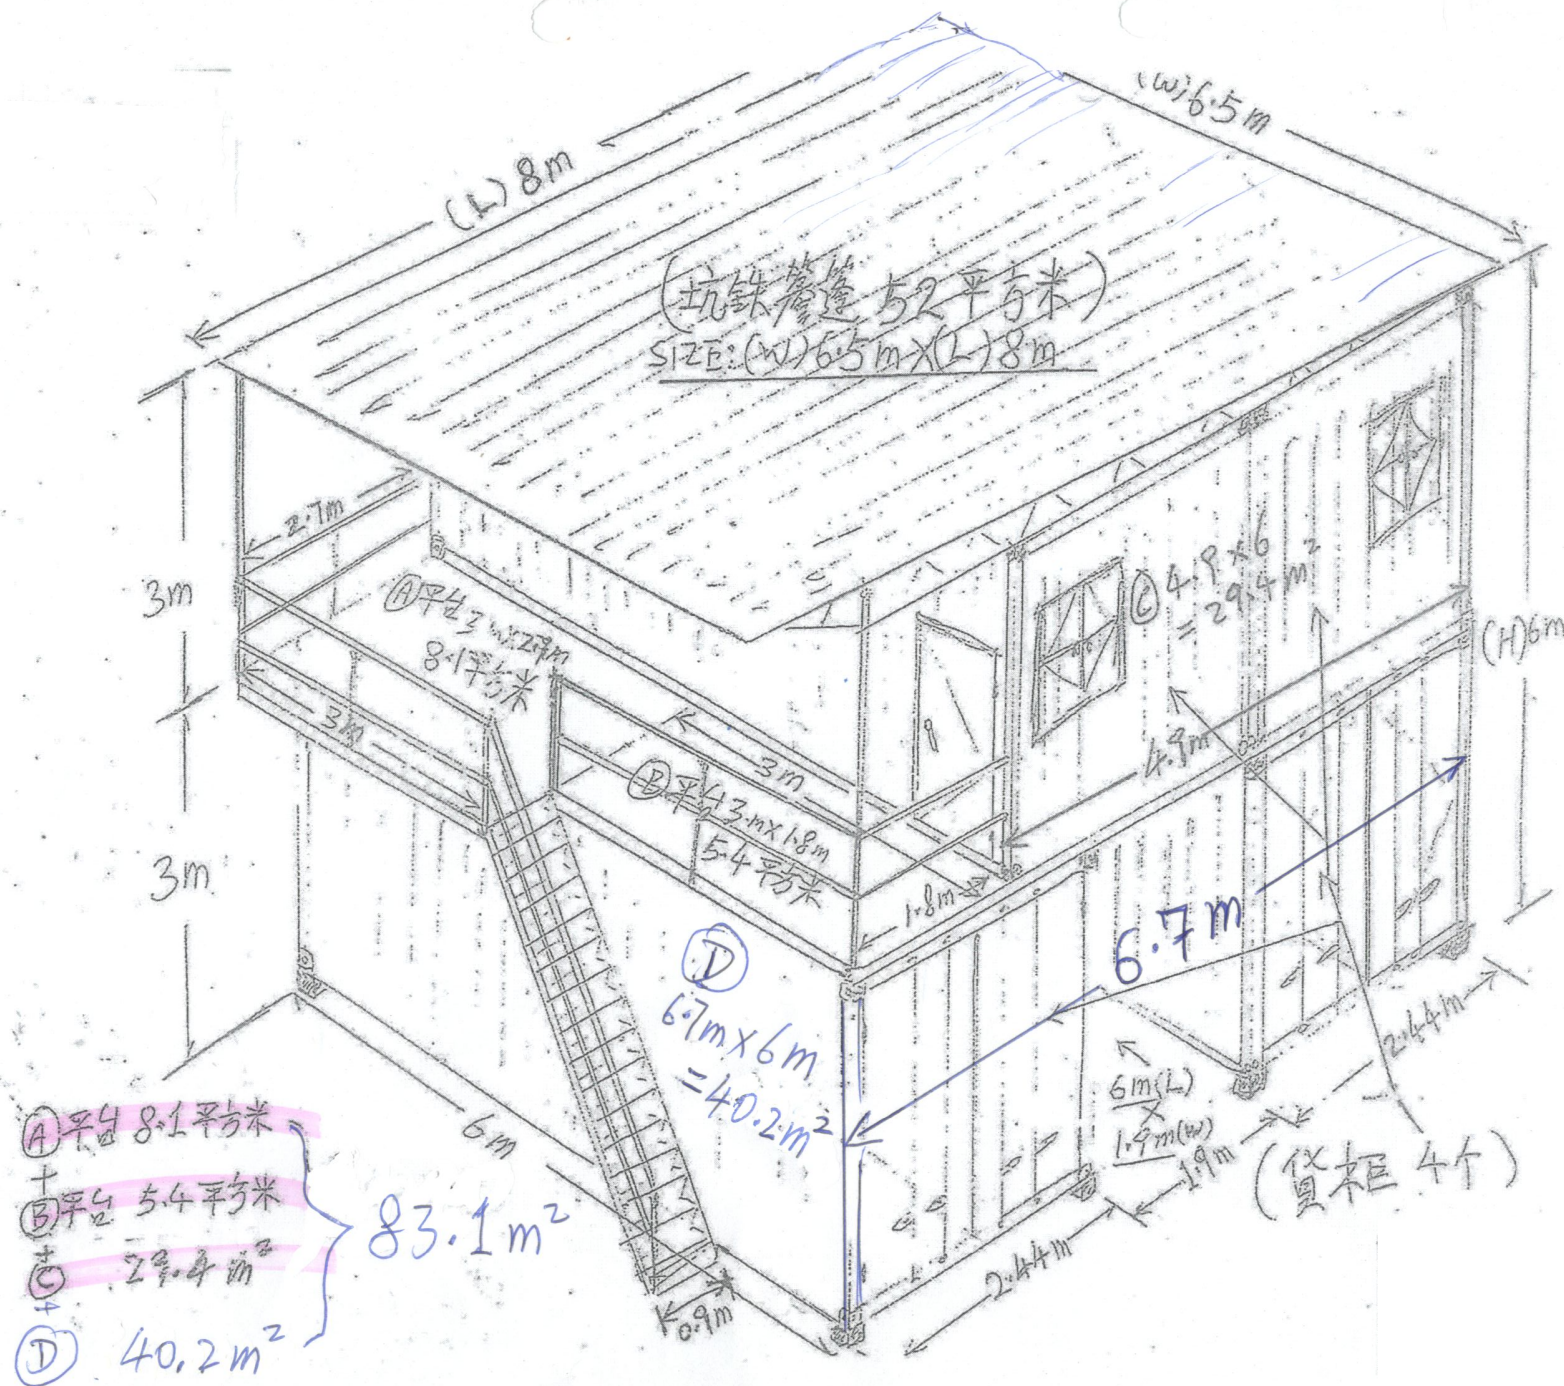 (W)6.5m
(L)8m
(坑铁簷篷 52平方米)
SIZE:(W)6.5m×(L)8m
2.7m
3m
Ⓐ平台3m×2.7m
8.1平方米
3m
3m
Ⓑ平台3m×1.8m
5.4平方米
1.8m
Ⓒ 4.9×6
=29.4m²
4.9m
(H)6m
3m
6.7m
Ⓓ
6.7m×6m
=40.2m²
6m
0.9m
2.44m
1.9m
2.44m
6m(L)
×
1.9m(W)
(貨柜 4个)
Ⓐ平台 8.1平方米
+
Ⓑ平台 5.4平方米
+
Ⓒ 29.4m²
+
Ⓓ 40.2m²
83.1m²